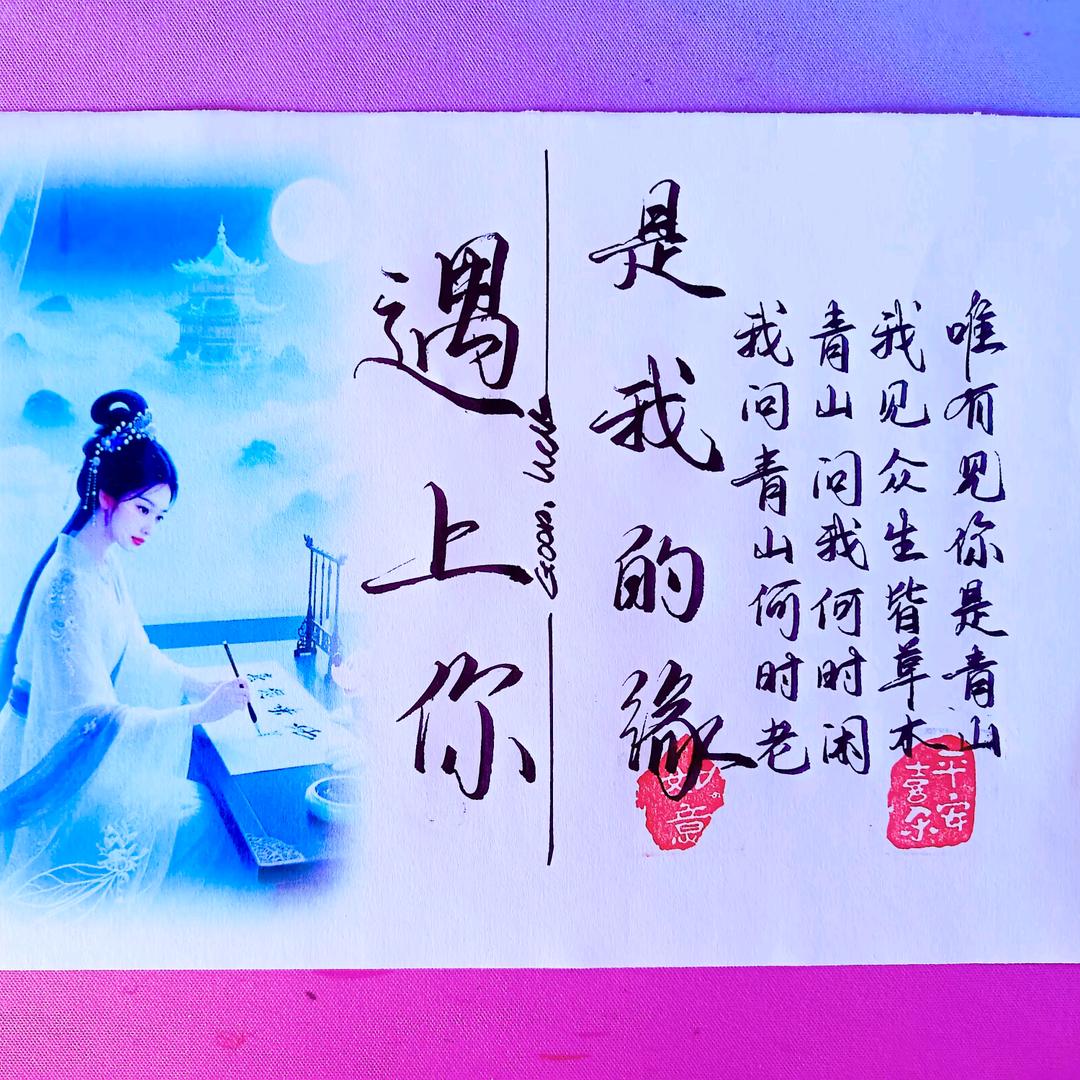 遇上你
是我的缘
我问青山何时老
青山问我何时闲
我见众生皆草木
唯有见你是青山
如意
平安
喜乐